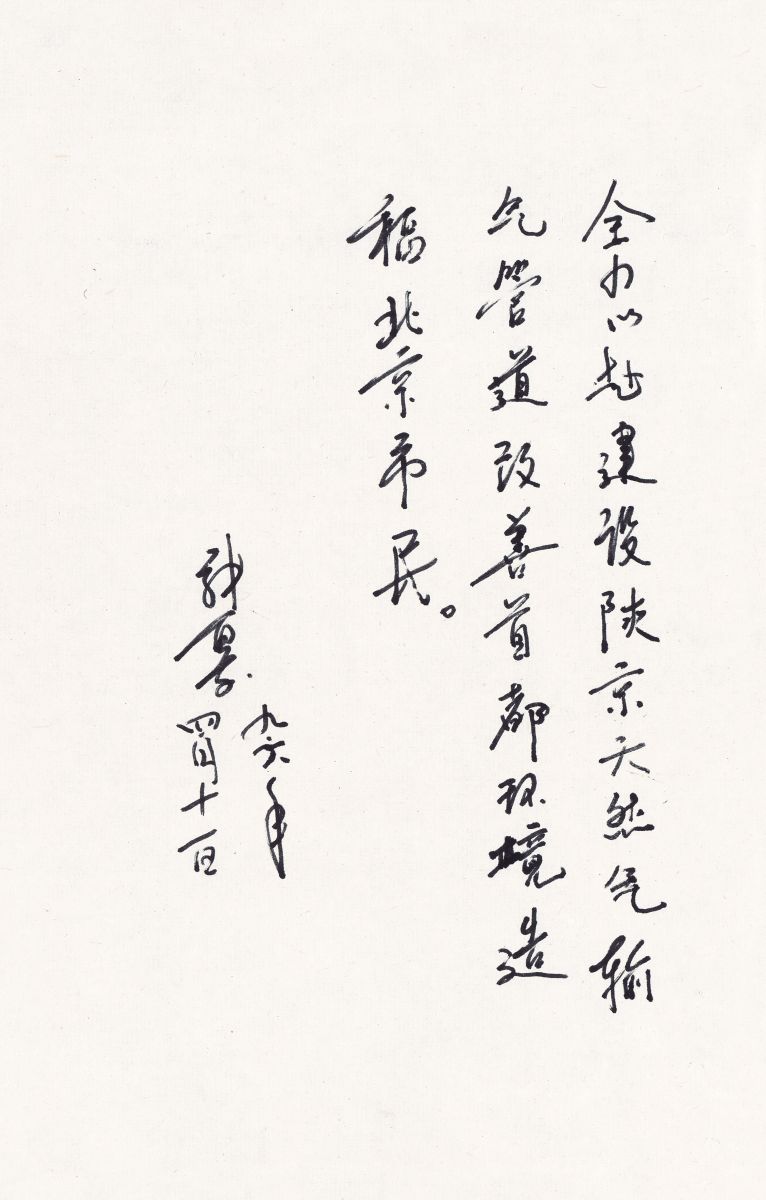 全力以赴建设陕京天然气输
气管道改善首都环境造
福北京市民。
九六年
四月十一日